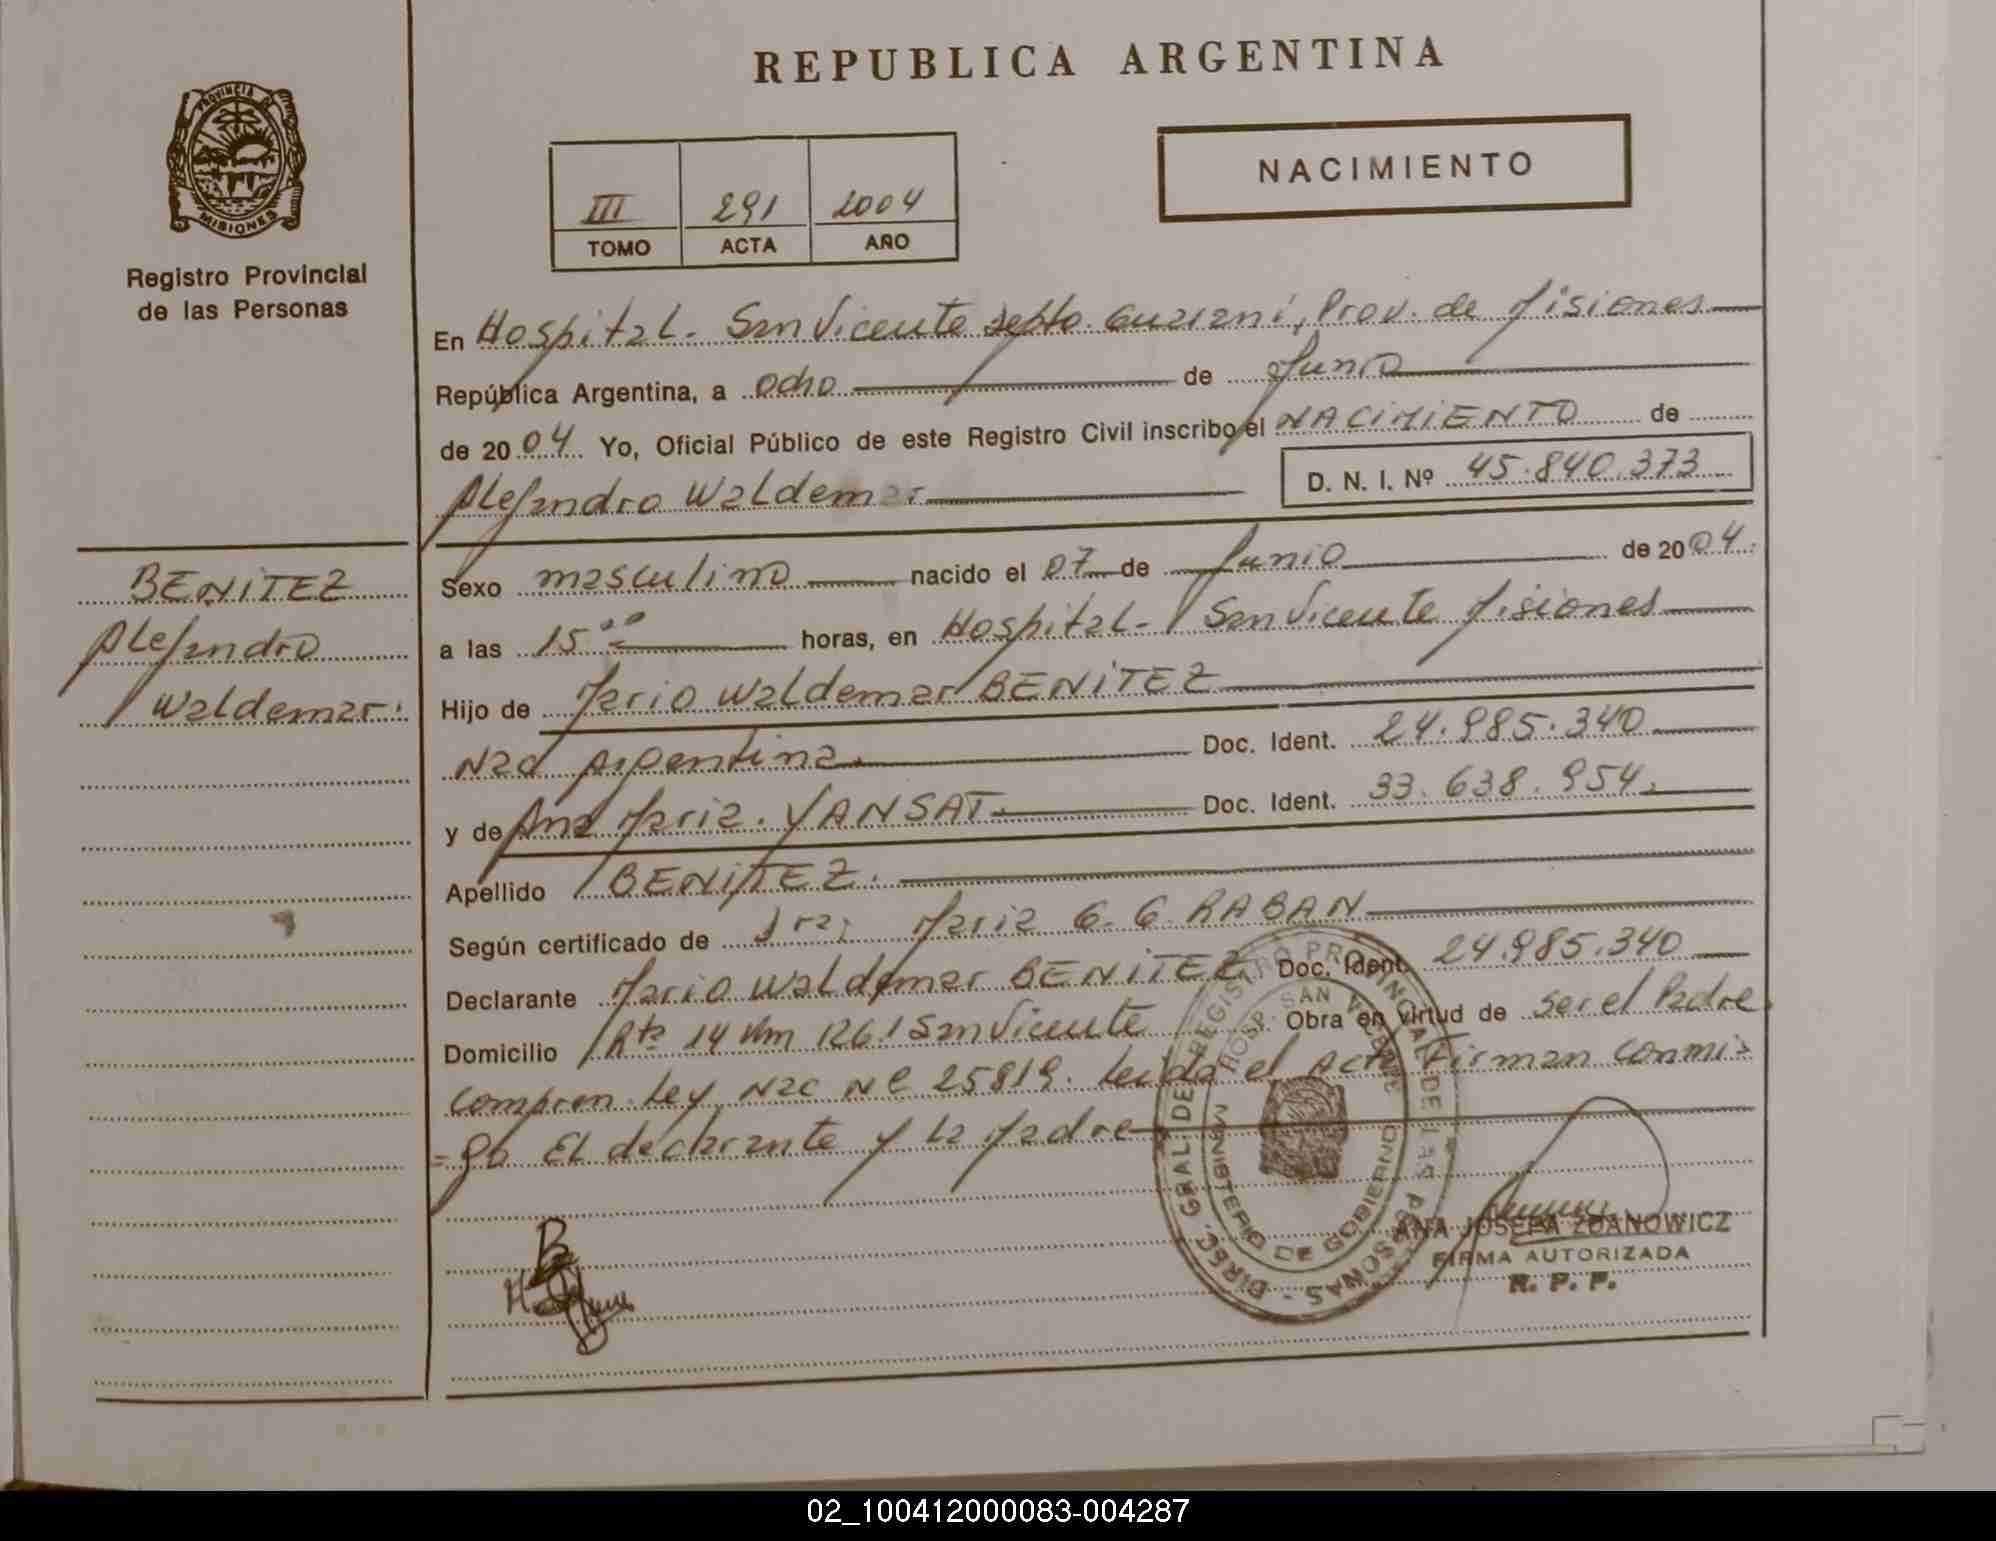 REPUBLICA ARGENTINA
PROVINCIA DE
MISIONES
Registro Provincial
de las Personas
NACIMIENTO
III 291 2004
TOMO ACTA AÑO
En Hospital - San Vicente Depto. Guarani, Prov. de Misiones
República Argentina, a ocho de Junio
de 2004 Yo, Oficial Público de este Registro Civil inscribo el NACIMIENTO de
D. N. I. Nº 45.840.373
Alejandro Waldemar
BENITEZ
Alejandro
Waldemar.
Sexo masculino nacido el 07 de Junio de 2004.
a las 15 00 horas, en Hospital - San Vicente Misiones
Hijo de Mario Waldemar BENITEZ
Nac Argentina. Doc. Ident. 24.985.340
y de Ana Maria. YANSAT. Doc. Ident. 33.638.954.
Apellido BENITEZ.
Según certificado de Sra; Maria G. G. RABAN
Declarante Mario Waldemar BENITEZ Doc. Ident. 24.985.340
Domicilio Rta 14 Km 1261 San Vicente Obra en virtud de ser el Padre
Compren. Ley Nac Nº 25819. Leida el Acta Firman conmi=
=go El declarante y La Madre
DIREC. GRAL. DEL REGISTRO PROVINCIAL DE LAS PERSONAS -
HOSP. SAN VICENTE
MINISTERIO DE GOBIERNO
ANA JOSEFA ZDANOWICZ
FIRMA AUTORIZADA
R. P. P.
02_100412000083-004287